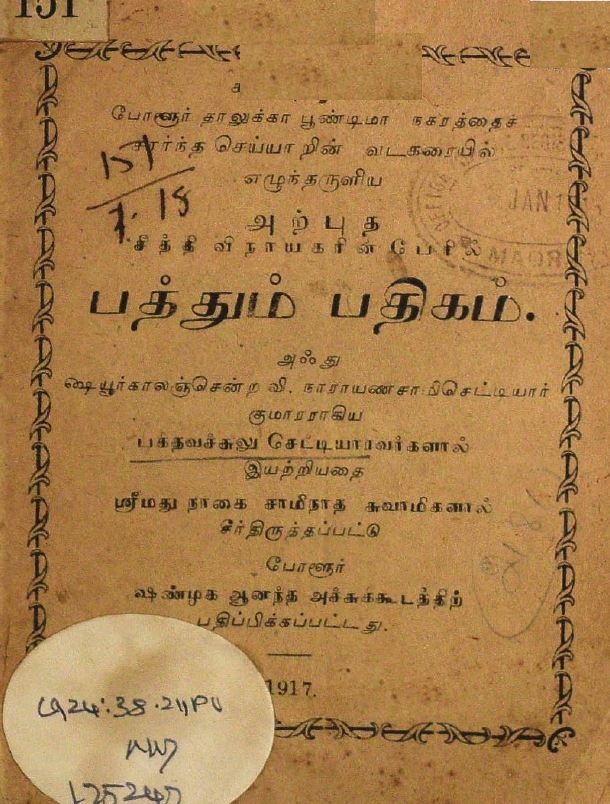 151
போளூர் தாலுக்கா பூண்டிமா நகரத்தைச்
சார்ந்த செய்யாறின் வடகரையில்
எழுந்தருளிய
அற்புத
சித்தி விநாயகரின் பேரில்
பத்தும் பதிகம்.
அஃது
ஷெயூர்காலஞ்சென்ற வி. நாராயணசாமிசெட்டியார்
குமாரராகிய
பக்தவச்சுலு செட்டியாரவர்களால்
இயற்றியதை
ஸ்ரீமது நாகை சாமிநாத சுவாமிகளால்
சீர்திருத்தப்பட்டு
போளூர்
ஷண்முக ஆனந்த அச்சுக்கூடத்திற்
பதிப்பிக்கப்பட்டது.
1917.
125240